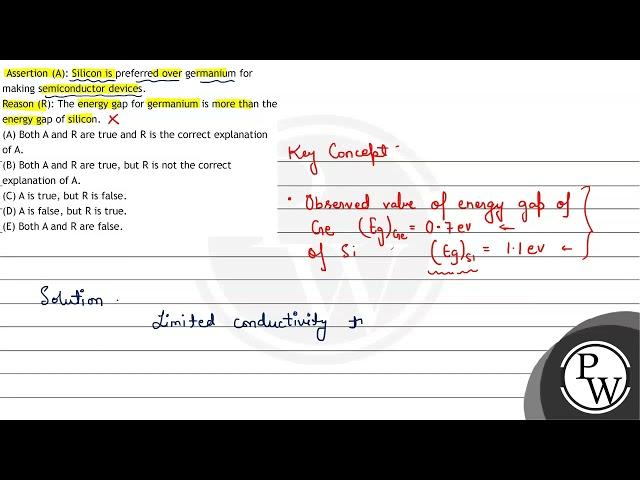 Assertion (A): Silicon is preferred over germanium for
making semiconductor devices.
Reason (R): The energy gap for germanium is more than the
energy gap of silicon. ✗
(A) Both A and R are true and R is the correct explanation
of A.
(B) Both A and R are true, but R is not the correct
explanation of A.
(C) A is true, but R is false.
(D) A is false, but R is true.
(E) Both A and R are false.
Key Concept -
• Observed value of energy gap of
Ge (Eg)Ge = 0.7 ev ←
of Si (Eg)Si = 1.1 ev ←
Solution .
Limited conductivity
PW